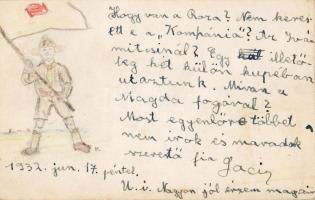 Hogy van a Roza? Nem keres-
ett e a „Kompánia"? Az Iván
mit csinál? Egy illető-
leg két külön kupéban
utaztunk. Mi van a
Magda fogával?
Most egyenlőre többet
nem irok és maradok
szerető fia Laci
1932. jun. 17. péntel,
U. i. Nagyon jól érzem magam